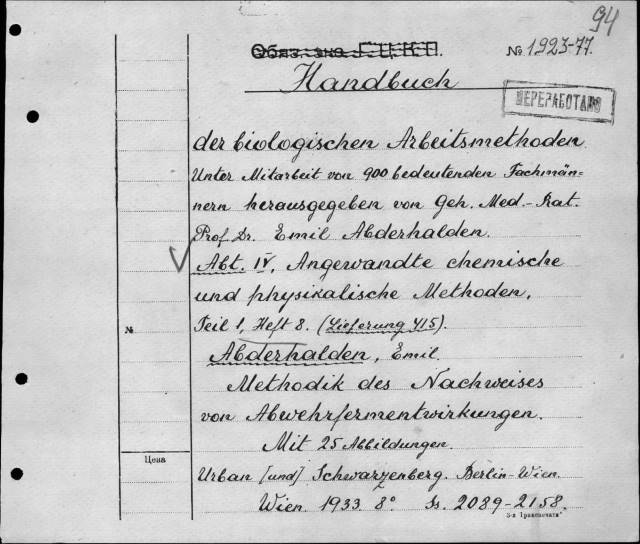 94
Обяз. экз. Г.Ц.К.П.
№ 1923-77.
Handbuch
ПЕРЕРАБОТАНО
der biologischen Arbeitsmethoden.
Unter Mitarbeit von 900 bedeutenden Fachmän=
nern herausgegeben von Geh. Med.-Rat.
Prof. Dr. Emil Abderhalden.
Abt. IV, Angewandte chemische
und physikalische Methoden,
Teil 1, Heft 8. (Lieferung 415).
№
Abderhalden, Emil.
Methodik des Nachweises
von Abwehrfermentwirkungen.
Mit 25 Abbildungen.
Цена
Urban [und] Schwarzenberg. Berlin-Wien.
Wien. 1933. 8° Ss. 2089-2158.
3-я "Транспечать"